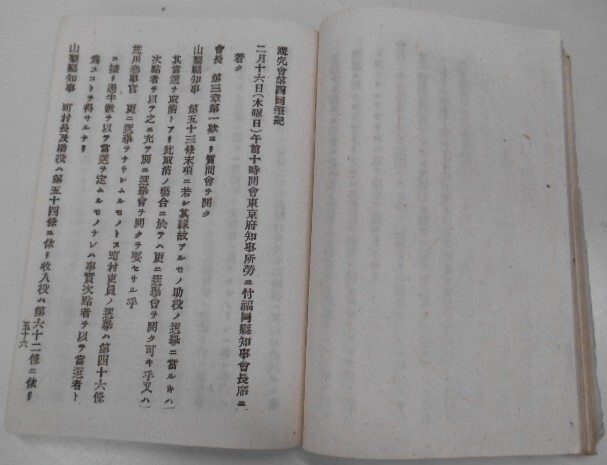 講究會第四回筆記
二月十六日(木曜日)午前十時開會東京府知事所勞ニ付福岡縣知事會長席ニ
着ク
會長 第三章第一欵ニヨリ質問會ヲ開ク
山梨縣知事 第五十三條末項ニ若シ其縁故アルモノ助役ノ選擧ニ當ルキハ
其當選ヲ取消トアリ此取消ノ塲合ニ於テハ更ニ選擧會ヲ開ク可キ乎又ハ
次點者ヲ以テ之ニ充ア別ニ選擧會ヲ開クヲ要セサル乎
荒川參事官 更ニ選擧ヲナサシムルモノトス町村吏員ノ選擧ハ第四十六條
ニ據リ過半數ヲ以テ當選ヲ定ムルモノナレハ事實次點者ヲ以テ當選者ト
爲スコトヲ得サルナリ
山梨縣知事 町村長及助役ハ第五十四條ニ依リ收入役ハ第六十二條ニ依リ
五十六